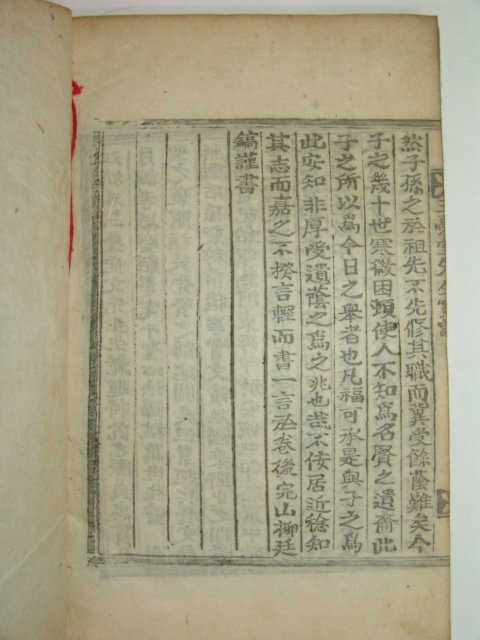 然子孫之於祖先不先修其職而冀受餘蔭難矣今
子之幾十世寒微困頓使人不知爲名賢之遺裔此
子之所以爲今日之擧者也凡福可承是與子之爲
此安知非厚受遺蔭之爲之兆也哉不佞居近稔知
其志而嘉之不揆言輕而書一言於卷後完山柳廷
鎬謹書